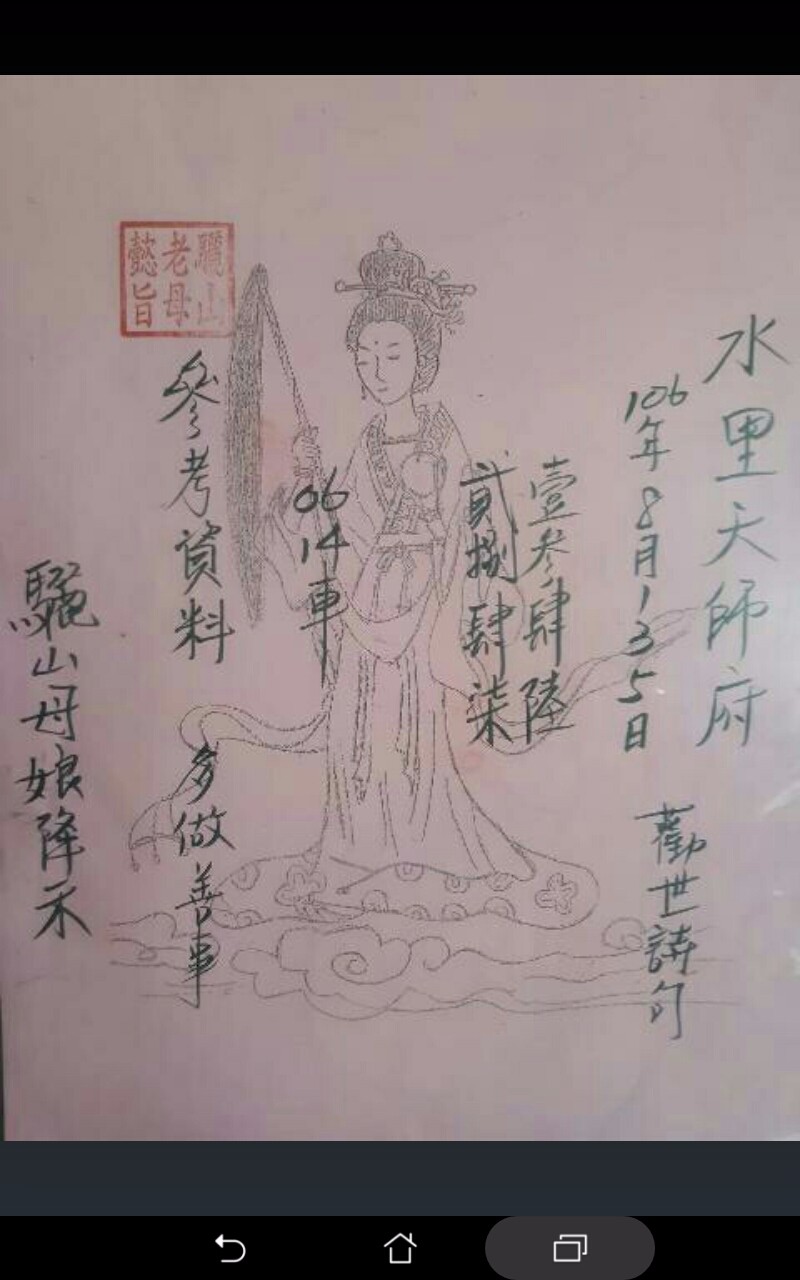 水里天師府
106年8月135日
勸世詩句
壹叁肆陸
貳捌肆柒
06
14車
驪山
老母
懿旨
參考資料
多做善事
驪山母娘降示